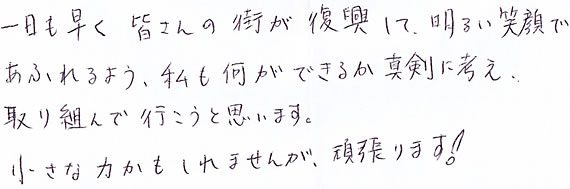 一日も早く 皆さんの街が復興して、明るい笑顔で
あふれるよう、私も何ができるか真剣に考え、
取り組んで行こうと思います。
小さな力かもしれませんが、頑張ります!!